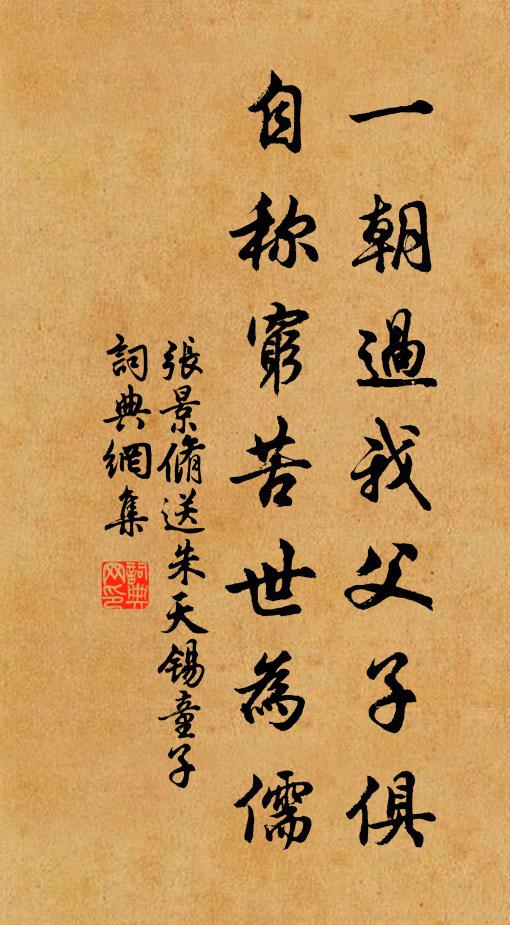 一朝過我父子俱
自称窮苦世為儒
張景脩送朱天錫童子
詞典網集
詞典網印